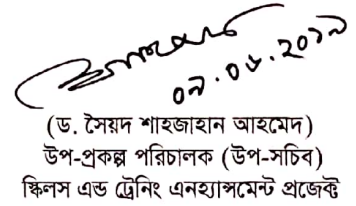 ০৯.০৮.২০১৯
(ড. সৈয়দ শাহজাহান আহমেদ)
উপ-প্রকল্প পরিচালক (উপ-সচিব)
স্কিলস এন্ড ট্রেনিং এনহ্যান্সমেন্ট প্রজেক্ট